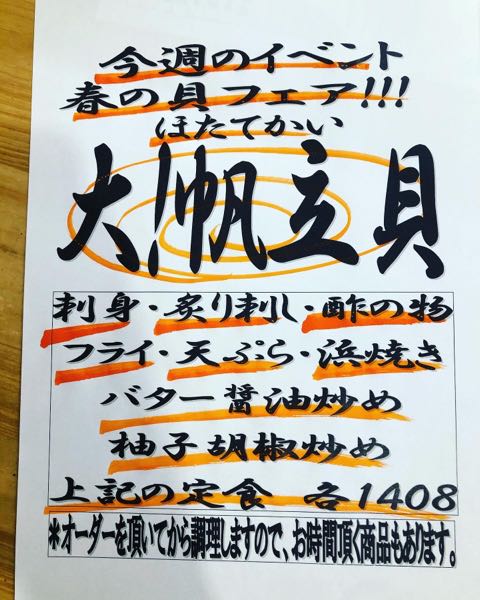 今週のイベント
春の貝フェア!!!
ほたてかい
大!帆立貝
刺身・炙り刺し・酢の物
フライ・天ぷら・浜焼き
バター醤油炒め
柚子胡椒炒め
上記の定食 各1408
*オーダーを頂いてから調理しますので、お時間頂く商品もあります。